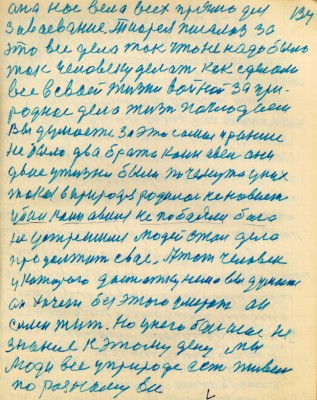 она нас вела всех прямо до 134
Забавание. Теорея писалоз за
это все дела так што не надо было
так человеку делат как сделали
все в своей жизни войной за при-
родное дела жизн
Вы думаете за это самих раньше
не было два брата каин авел они
двое ужизни были
такое вприроде родилос ненавист
убил каин авиля не побаялся бога
не устрешился людей стал дела
продолжит свае. А тот человек
укоторого достатку нема вы думаете
он хочет без этого умерат он
силен жит. Но унего болшое не
знание к этому делу мы
люди все уприроде ест живем
по разному вси